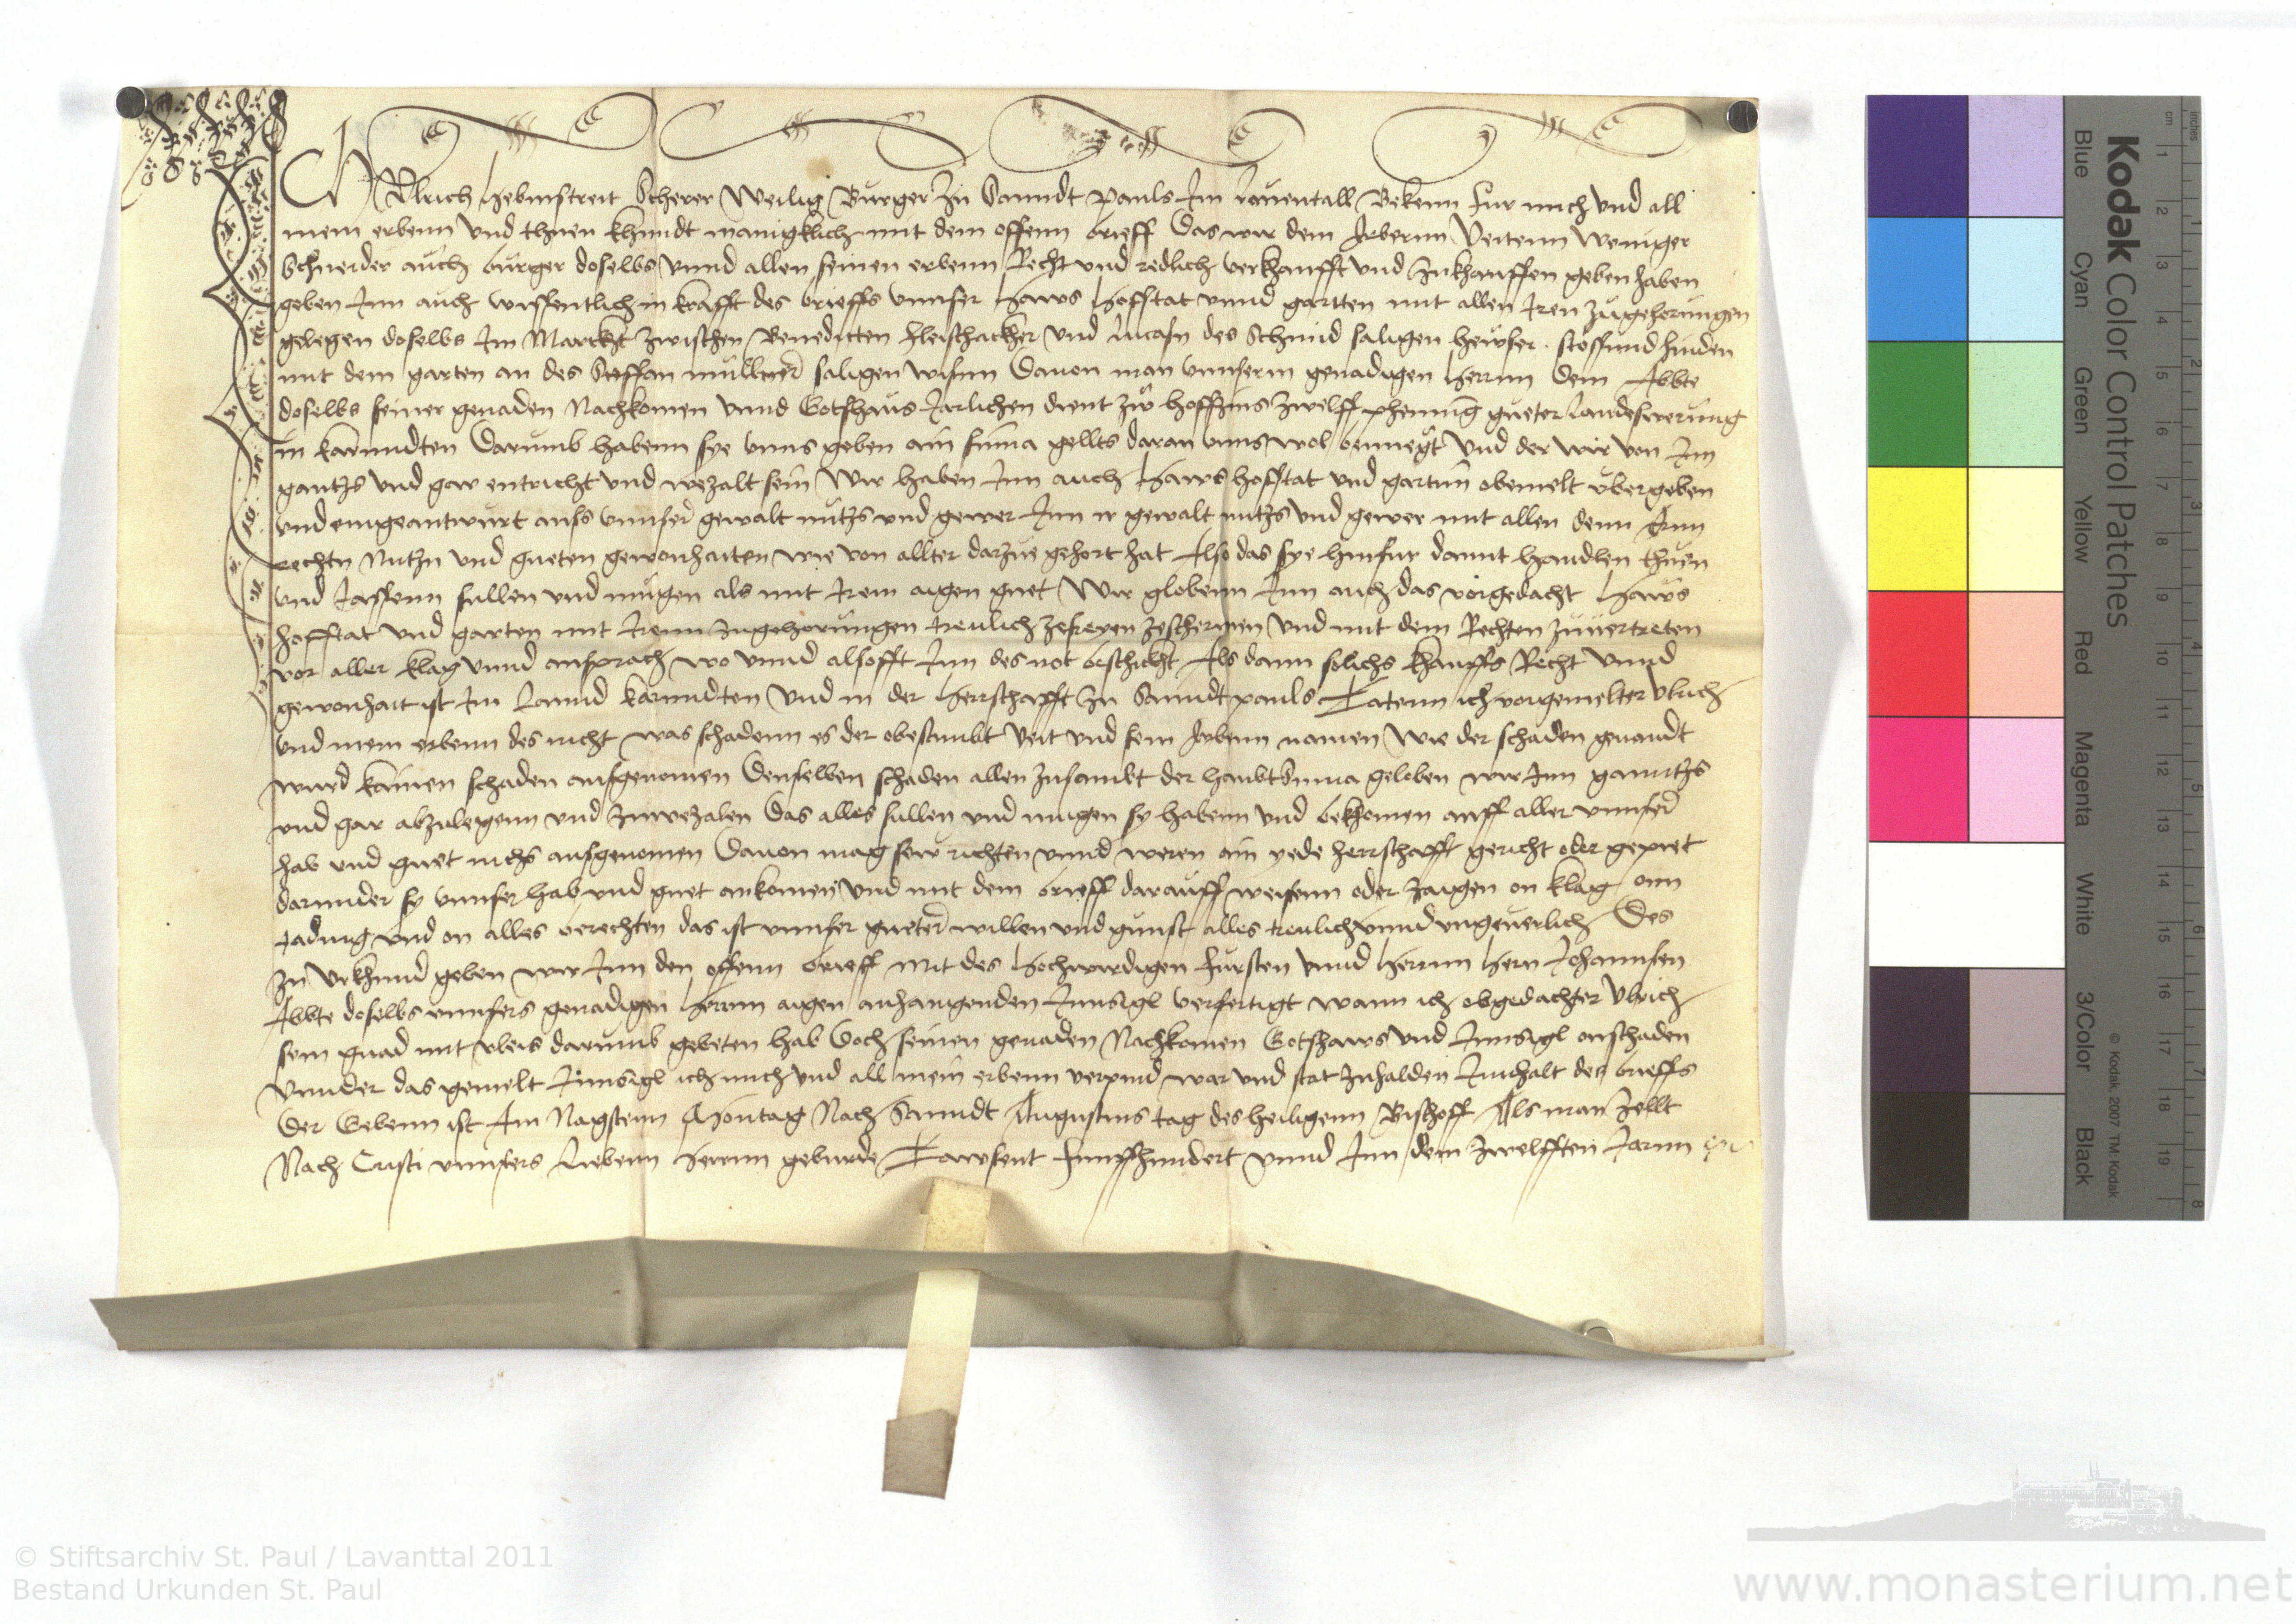 Ich Ulrich Hebmstreit Scherer Weilig Burger Zu Sanndt Pauls Im Lauentall Bekenn fur mich vnd all
mein erbenn vnd thuen khundt manigklich mit dem offenn brieff Das wir dem Erbernn Veitenn Weniger
Schneider auch burger doselbs vnnd allen seinen erbenn Recht vnd redlich verkhaufft vnd Zukhauffen geben haben
geben Inn auch wissentlich in krafft des brieffs vnnser Haws Hofstat vnnd gartten mit allen Iren zugehorungen
gelegen doselbs Im Marckht zwischen Benedicten fleischackher vnd Lucasn des Schmid saligen hewser stossund hinden
mit dem garten an des Steffan mullner saligen wisnn Dauon man vnnserm genadigen Herrnn Dem Abbte
doselbs seiner genaden Nachkomen vnnd Gotshaus Jarlichen dient zw hoffzins zwelff phenning gueter Landeswerung
in karnndten Darumb habenn sye vnns geben ain suma gellts daran vnns wol benuegt vnd der wir von Im
gantzs vnd gar entricht vnd wezalt sein Wir haben Inn auch Haws hofstat vnd gartnn obemelt vbergeben
vnd eingeantwurt auss vnnser gewalt nutzs vnd gewer Inn ir gewalt nutzs vnd gewer mit allen denn Erun
rechtn Nutzn vnd gueten gewonhaiten wie von allter darzue gehort hat Also das sye hinfur damit handlen thuen
vnd lassenn sullen vnd mugen als mit Irem aigen guet Wir globenn Inn auch das vorgedacht Haws
hofstat vnd garten mit Irenn zugehorungen treulich zefreyen zeschermen vnd mit dem Rechten zuuertreten
vor aller klag vnnd ansprach wo vnnd alsofft Inn des not beschicht Als dann solichs khauffs Recht vnnd
gewonhait ist Im Lannd karnndten vnd in der Herrschafft zu Sanndt pauls Tatenn ich vorgemelter Vlrich
vnd mein erbenn des nicht was schadenn es der obestimbt Veit vnd sein Erbenn namen Wie der schaden genandt
wurd kainen schaden ausgenomen Denselben schaden allen zusambt der haubtsuma geloben wir Inn ganntzs
vnd gar abzulegenn vnd zuwezalen Das alles sullen vnd mugen sy habenn vnd bekhomen auff aller vnnser
hab vnd guet nichs ausgenomen Dauon mag sew richten vnnd weren ain yede herrschafft gericht oder gepiet
darunder sy vnnser hab vnd guet ankomen vnd mit dem brieff darauff weisenn oder zaigen on klag onn
tading vnd on alles berechten das ist vnnser gueter willen vnd gunst alles treulich vnnd vngeuerlich Des
zu Vrkhund geben wir Inn den offenn brieff Mit des hochwirdigen fursten vnnd Herrnn Hern Johannsen
Abbte doselbs vnnsers genadigen Herrnn aigen anhangenden Innsigl verfertigt wann ich obgedachter Vlrich
sein gnad mit vleis darumb gebeten hab Doch seinen genaden Nachkomen Gotshaws vnd Innsigl onschaden
Vnnder das gemelt Innsigl ich mich vnd all mein erbenn verpind war vnd stat zuhalden Innhalt des brieffs
Der Gebenn ist Am Nagstenn Montag Nach Sanndt Augustins tag des heiligenn Bischoff Als man Zellt
Nach Cristi vnnsers Liebenn Herrnn geburde Tawsent funffhundert vnnd Inn dem zwelfften Jarnn
Kodak Color Control Patches
Blue Cyan Green Yellow Red Magenta White 3/Color Black
© Kodak 2007 TM: Kodak
inches 1 2 3 4 5 6 7 8
cm 1 2 3 4 5 6 7 8 9 10 11 12 13 14 15 16 17 18 19
© Stiftsarchiv St. Paul / Lavanttal 2011
Bestand Urkunden St. Paul
www.monasterium.net